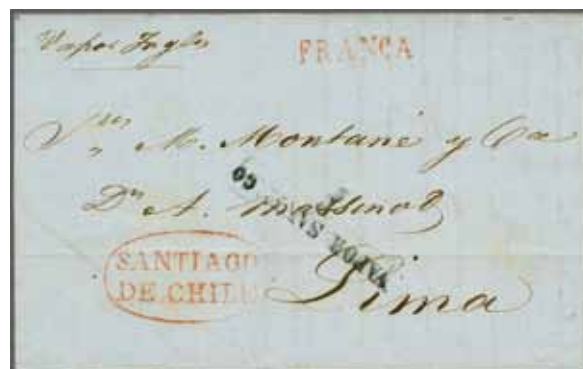 Vapor Ingles
FRANCA
Sres M. Montané y Ca
Dn A.
VAPOR SANTIAGO
SANTIAGO
DE CHILE
Lima